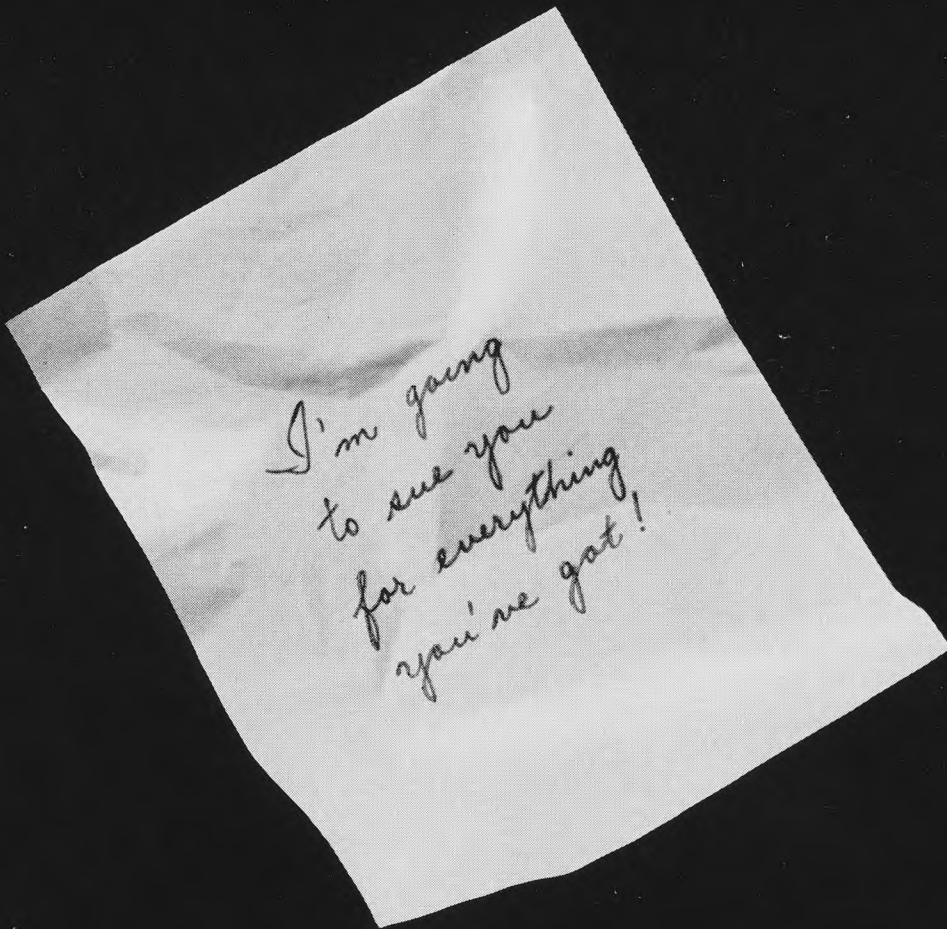 I'm going
to sue you
for everything
you've got!